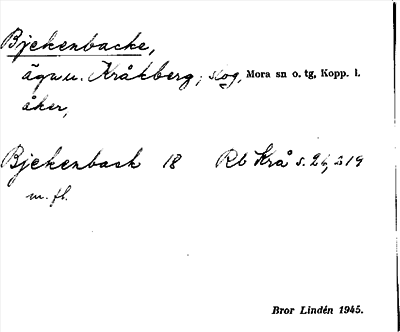 Bjekenbacke,
ägn.u. Kråkberg; skog, Mora sn o. tg, Kopp. l.
åker,
Bjekenback 18 Rb Krå s. 26, 219
m. fl.
Bror Lindén 1945.